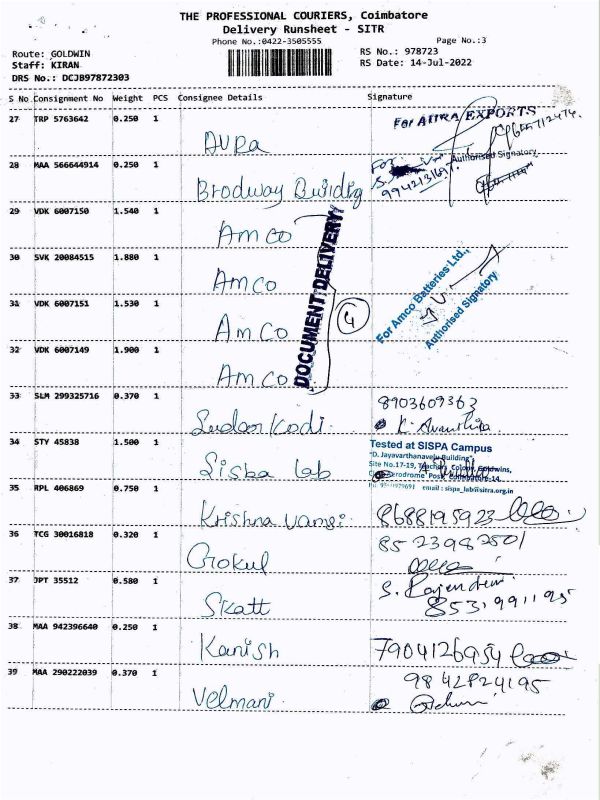 THE PROFESSIONAL COURIERS, Coimbatore
Delivery Runsheet - SITR
Phone No.:0422-3505555
Page No.:3
Route: GOLDWIN
RS No.: 978723
Staff: KIRAN
RS Date: 14-Jul-2022
DRS No.: DCJB97872303
S No Consignment No Weight PCS Consignee Details Signature
27 TRP 5763642 0.250 1
For AURA EXPORTS
Authorised Signatory
28 MAA 566644914 0.250 1 Brodway Building
29 VDK 6007150 1.540 1 Amco
30 SVK 20084515 1.880 1 Amco
31 VDK 6007151 1.530 1 Amco
32 VDK 6007149 1.900 1 Amco
DOCUMENT DELIVERY
4
For Amco Batteries Ltd.,
Authorised Signatory
33 SLM 299325716 0.370 1
8903609363
34 STY 45838 1.500 1 Sisba Lab
Tested at SISPA Campus
"D. Jayavarthanavelu Building"
Site No.17-19, Teachers Colony, Goldwins,
Post, Coimbatore-14.
email : sispa_lab@sitra.org.in
35 RPL 406869 0.750 1 Krishna vamsi
8688195923
36 TCG 30016818 0.320 1 Gokul
8523982501
37 JPT 35512 0.580 1 Skatt
S. Rajendran
8531991195
38 MAA 942396640 0.250 1 Kanish
7904126954
39 MAA 290222039 0.370 1 Velmani
9842824195